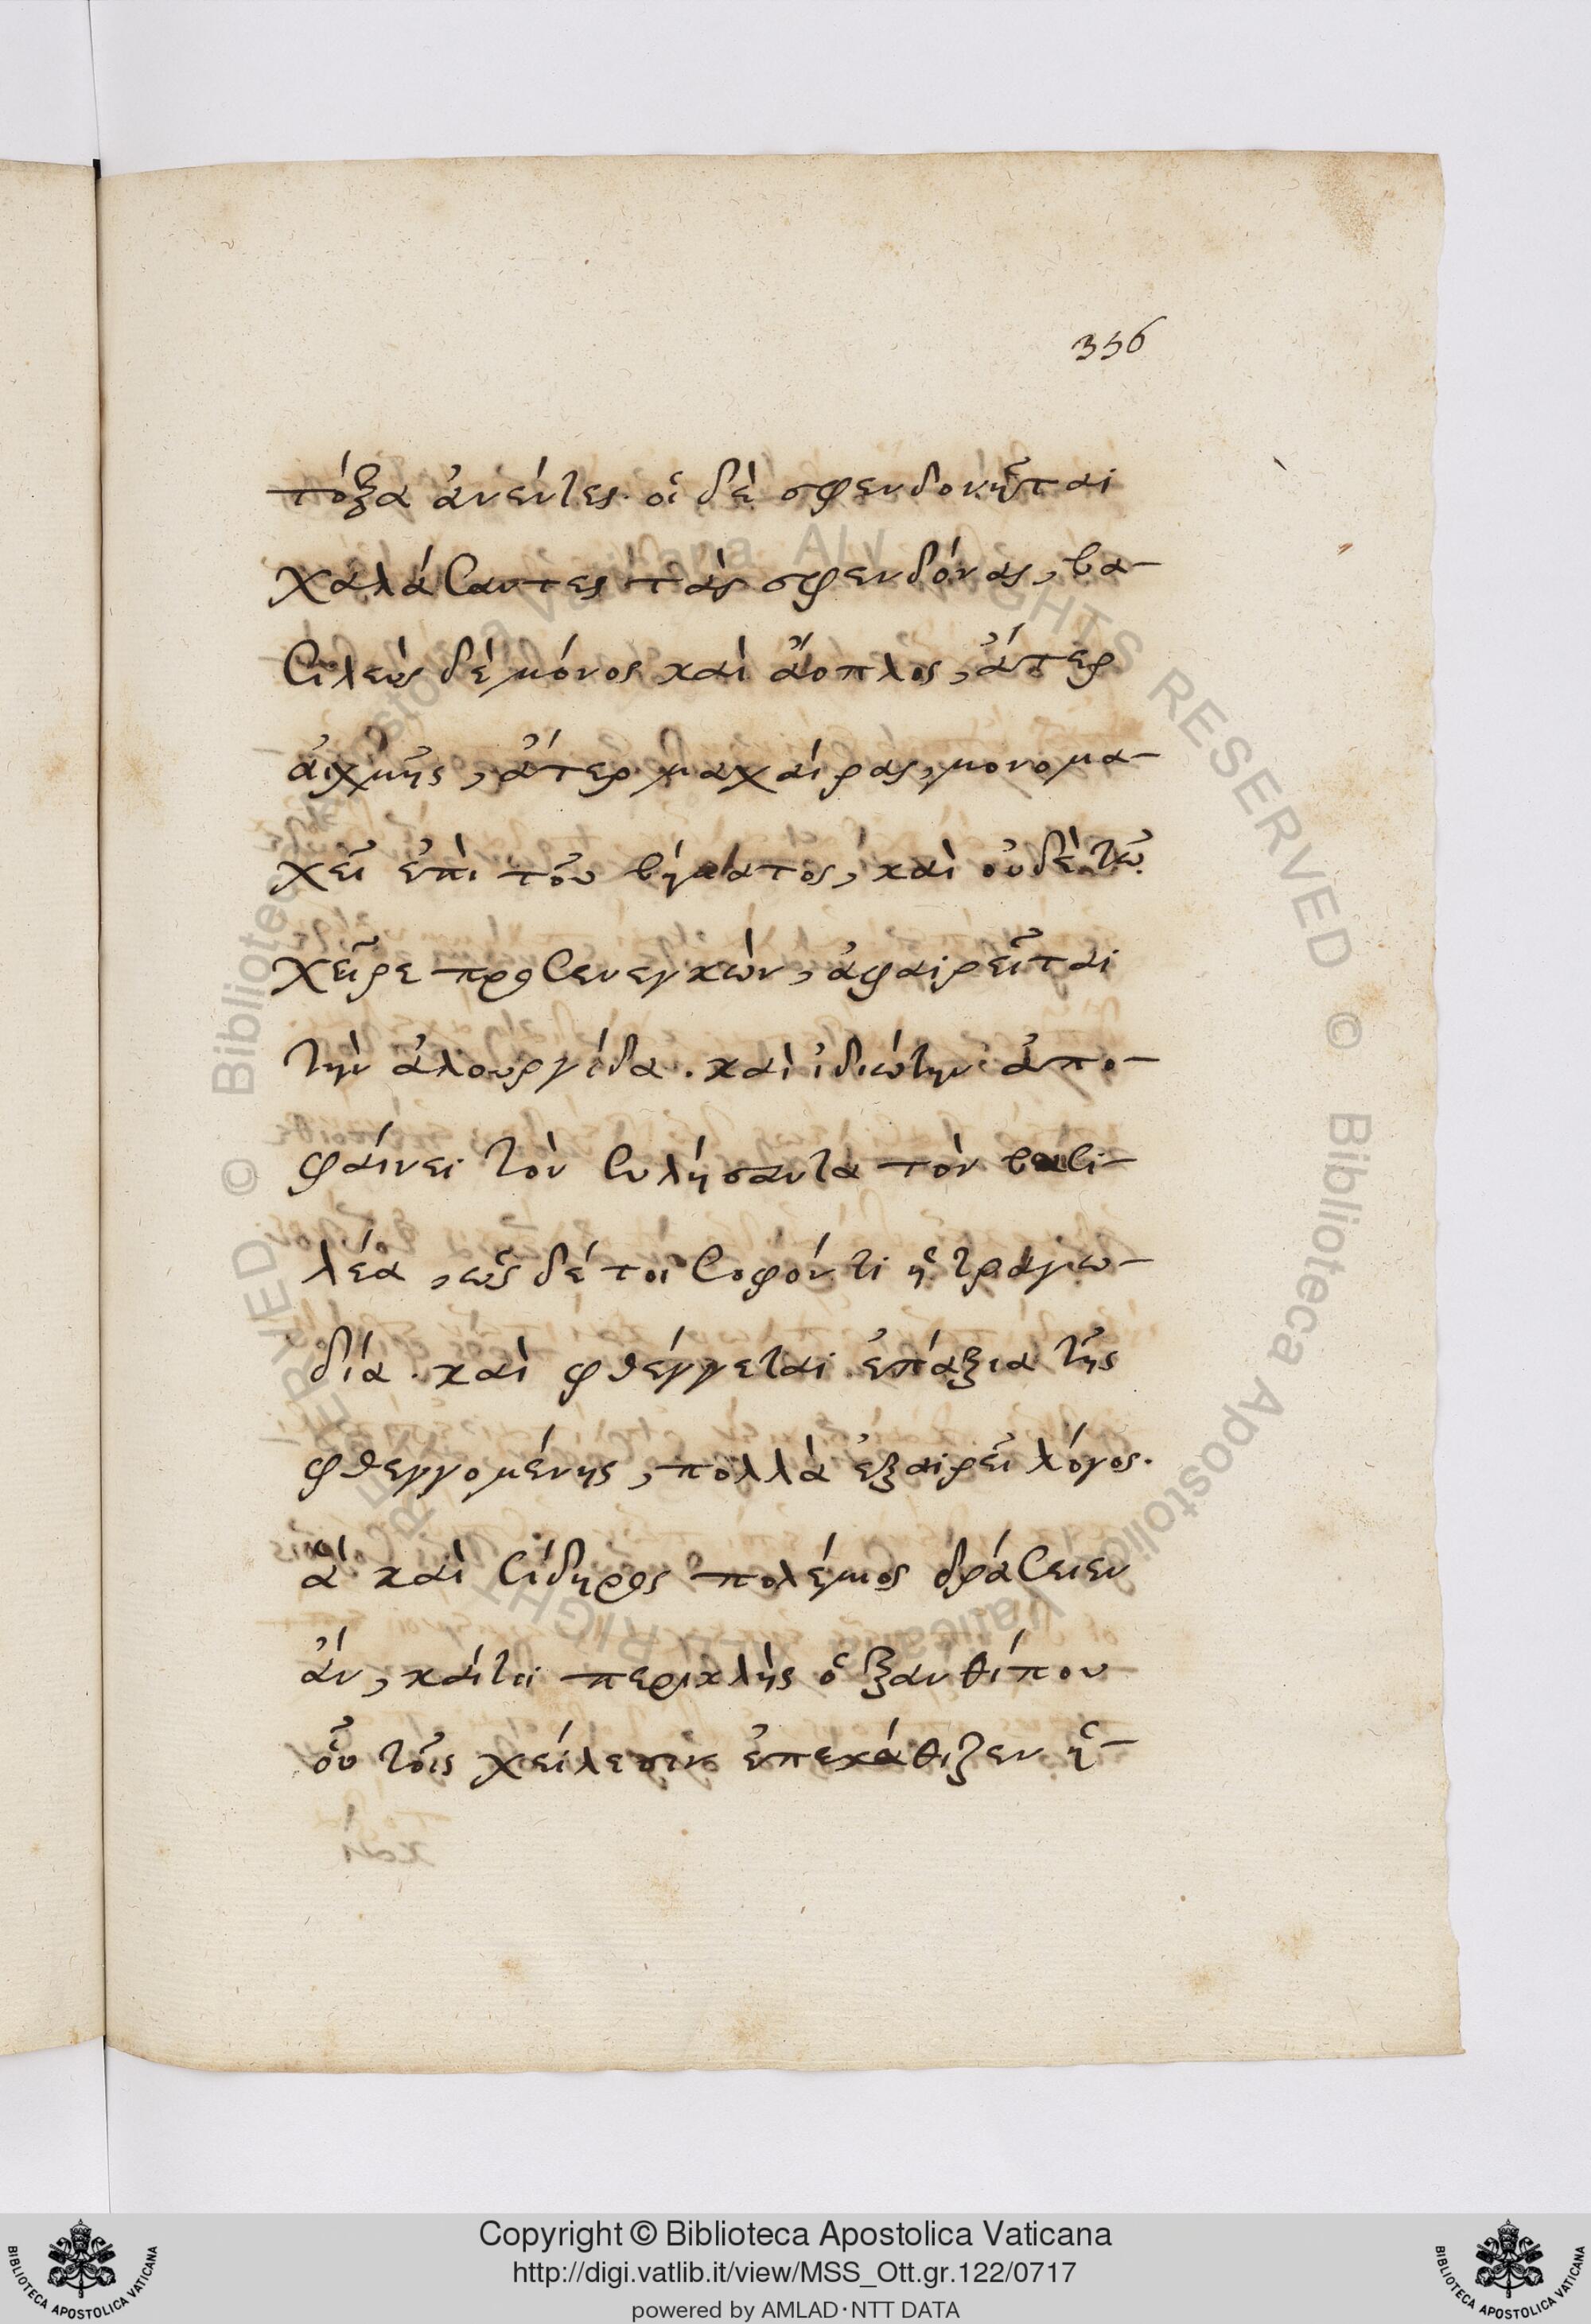 356
τόξα ἀνέντες. οἱ δὲ σφενδονῆται
χαλάσαντες τὰς σφενδόνας, βα-
σιλεὺς δὲ μόνος καὶ ἄοπλος, ἄτερ
αἰχμῆς, ἄτερ μαχαίρας, μονομα-
χεῖ ἐπὶ τοῦ βήματος, καὶ οὐδὲ τὼ
χεῖρε προσενεγκὼν, ἀφαιρεῖται
τὴν ἁλουργίδα. καὶ ἰδιώτην ἀπο-
φαίνει τὸν συλήσαντα τὸν βασι-
λέα, ὡς δέ τοι σοφόν τι ἡ τραγω-
δία. καὶ φθέγγεται ἐπάξια τῆς
φθεγγομένης, πολλὰ ἐξαιρεῖ λόγος.
ἃ καὶ σίδηρος πολέμιος δράσειεν
ἄν, καίτοι περικλῆς ὁ ξανθίπου
οὗ τοῖς χείλεσιν ἐπεκάθιζεν ἡ-
Copyright © Biblioteca Apostolica Vaticana
http://digi.vatlib.it/view/MSS_Ott.gr.122/0717
powered by AMLAD·NTT DATA